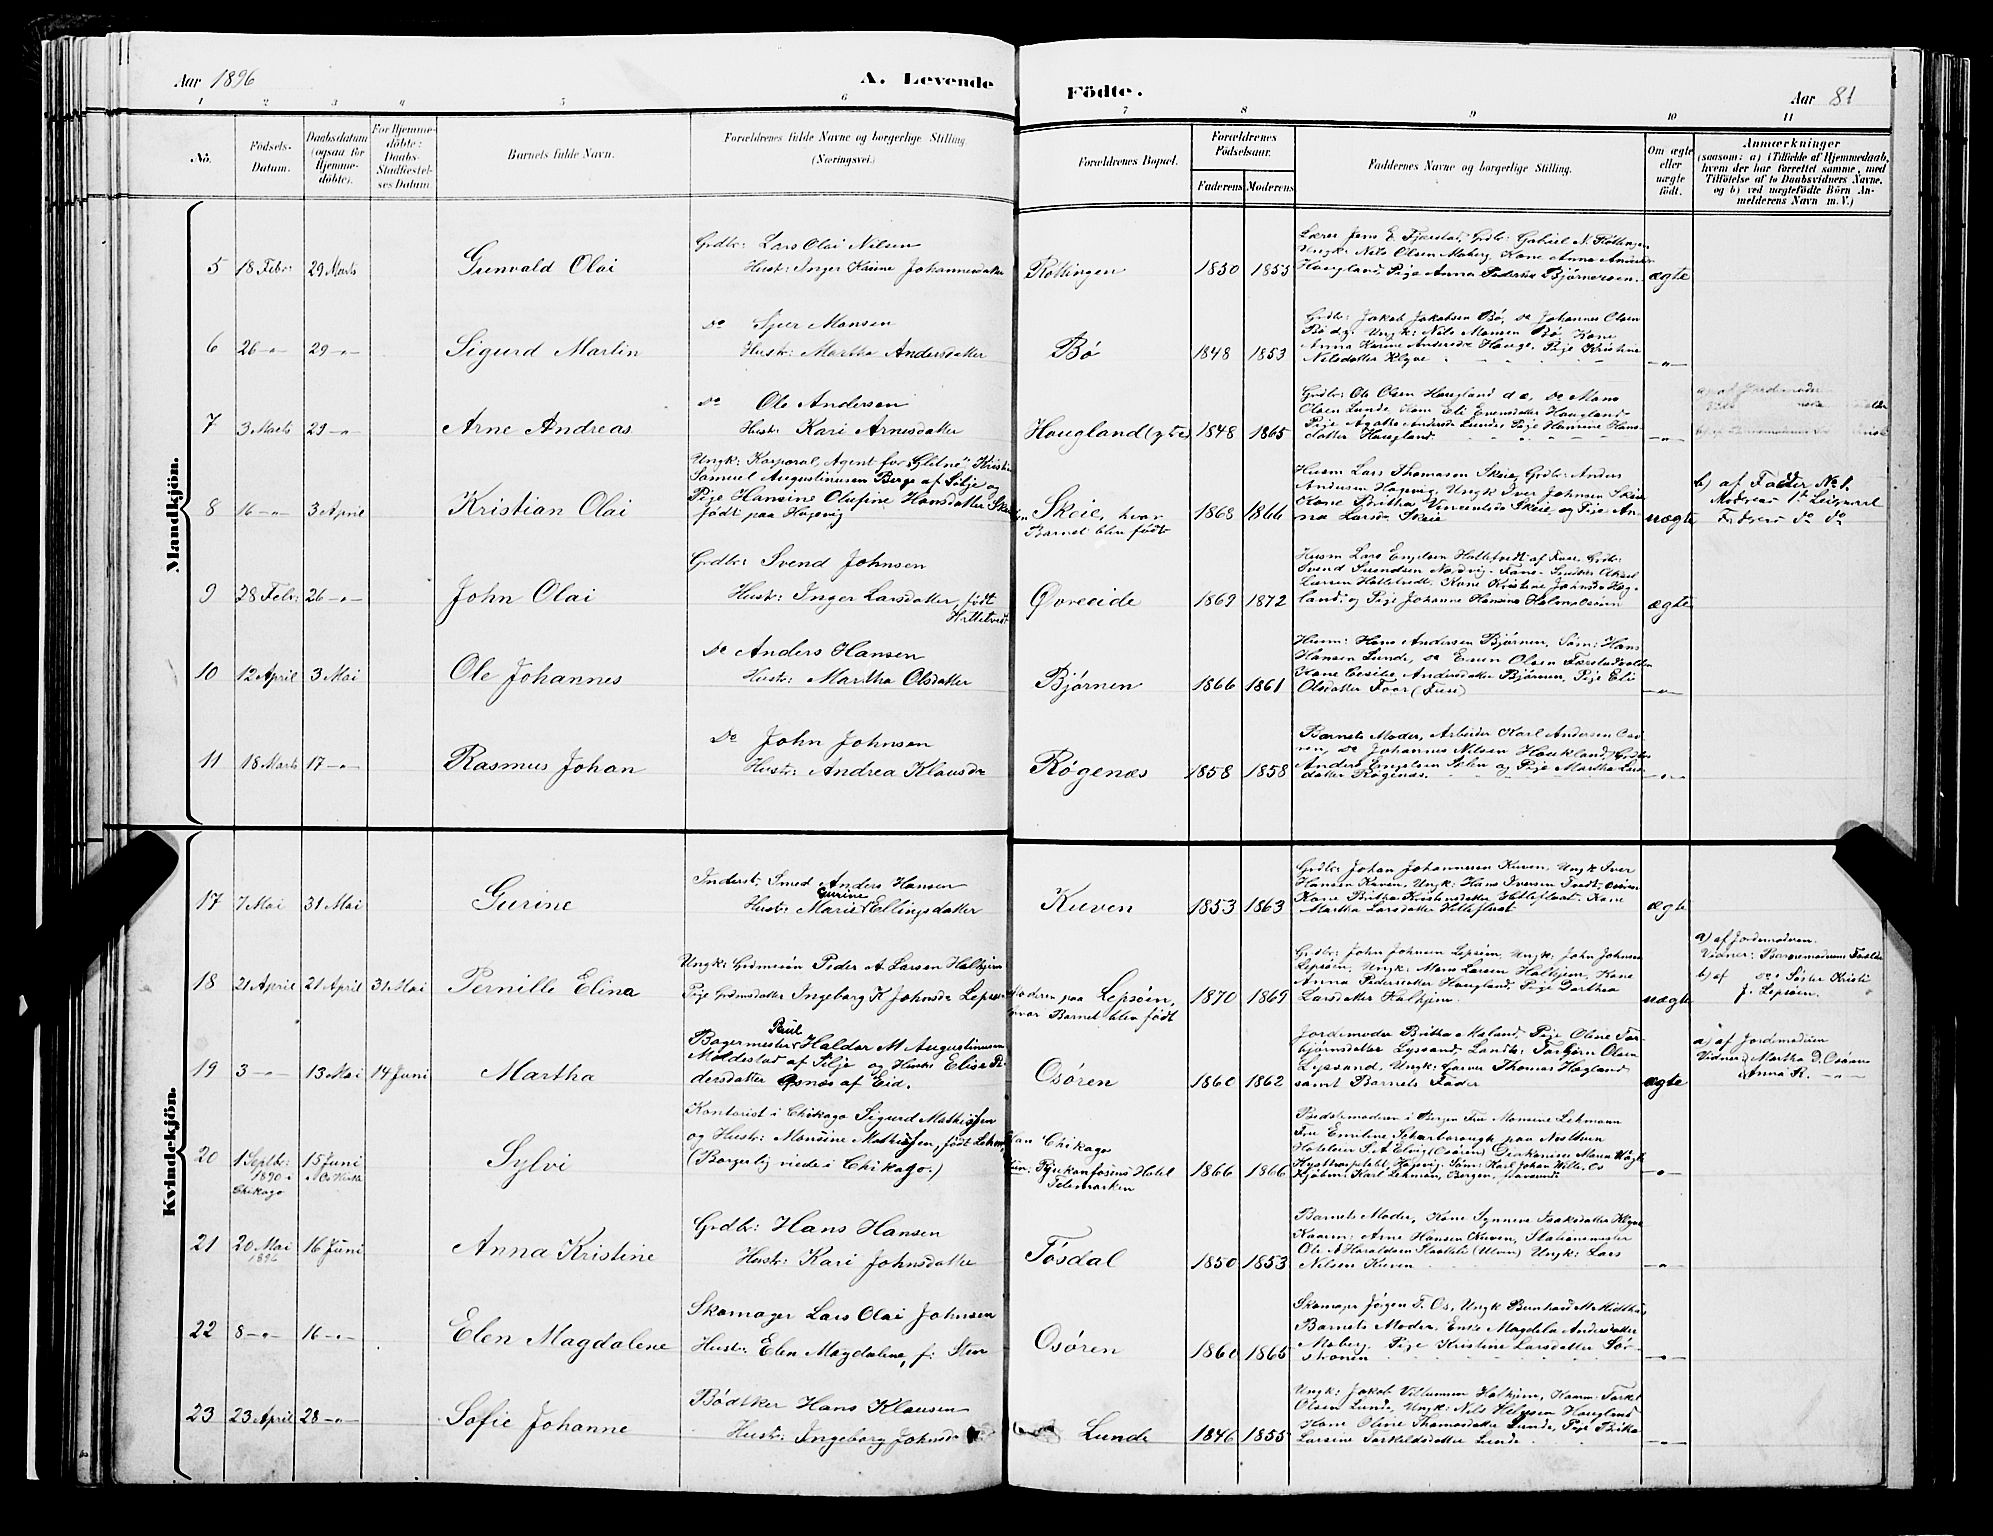 Aar 1896
A. Levende
Födte.
Aar 81
1 2 3 4 5 6 7 8 9 10 11
No.
Födsels-
Datum.
Daabsdatum
(ogsaa for
Hjemme-
döbte).
For Hjemme-
döbte:
Daabs-
Stadfæstel-
ses Datum.
Barnets fulde Navn.
Forældrenes fulde Navne og borgerlige Stilling.
(Næringsvei.)
Forældrenes Bopæl.
Forældrenes
Födselsaar.
Faderens
Moderens
Faddernes Navne og borgerlige Stilling.
Om ægte
eller
uægte
født.
Anmærkninger
(saasom: a) i Tilfælde af Hjemmedaab,
hvem der har forrettet samme, med
Tilföielse af to Daabsvidners Navne,
og b) ved uægtefödte Börn An-
melderens Navn m. V.)
Mandkjön.
5 18 Febr: 29 Marts
Gunvald Olai
Grdbr: Lars Olai Nilsen
Hust: Inger Karine Johannesdatter
Røttingen
1850 1855
Lærer Jens E. Fjærestad, Grdbr: Gabriel N. Røttingen
Ungk: Nils Olsen Moberg Kone Anna Anders
Haugland, Pige Anna Pedersd. Bjørnersen
ægte
6 26 -"- 29 -"-
Sigurd Martin
Do Sjur Monsen
Hust: Martha Andersdatter
Bø
1848 1853
Grdbr: Jakob Jakobsen Bø, Do Johannes Olsen
Bø d.y. Ungk: Nils Monsen Bø, Kone
Anna Karine Andersdr Hauge. Pige Kristine
Nilsdatter Klyve
-"-
7 3 Marts 29 -"-
Arne Andreas
Do Ole Andersen
Hust: Kari Arnesdatter
Haugland (ytre)
1848 1865
Grdbr: Ole Olsen Haugland d.e., Do Mons
Olsen Lunde, Kone Eli Evensdatter Haugland
Pige Agathe Andersd. Lunde, Pige Hansine Hans-
datter Haugland.
-"-
a) af Jordemoder
8 16 -"- 3 April
Kristian Olai
Ungk: Korporal, Agent for "Glitne" Kristian
Samuel Augustinusen Berge af Silje og
Pige Hansine Olufine Hansdatter Skeie
født paa Hegevig
Skeie, hvor
Barnet blev født
1868 1866
Husm Lars Thomasen Skeie, Grdbr: Anders
Andersen Hagevig, Ungk Iver Johnsen Skeie
Kone Britha Vincentsd. Skeie og Pige An-
na Larsd. Skeie
uægte
b) af Fadder No 1.
Moderens 1st Leiermaal
Faderens do do
9 28 Febr: 26 -"-
John Olai
Grdbr: Svend Johnsen
Hust: Inger Larsdatter, født
Hattetvedt
Øvreeide
1869 1872
Husm Lars Engelsen Hattetvedt af Fane, Grdbr:
Svend Svendsen Nordvig - Fane - Snedker Aksel
Larsen Hattetvedt. Kone Kristine Johnsd. Hag-
land, og Pige Johanne Hansine Halmøsen
ægte
10 12 April 3 Mai
Ole Johannes
Do Anders Hansen
Hust: Martha Olsdatter
Bjørnen
1866 1861
Husm: Hans Andersen Bjørnen, Søn: Hans
Hansen Lunde, Do Enen Olsen
Kone Cecilie Andersdatter Bjørnen, Pige Eli
Olsdatter Foor (Fuse)
-"-
11 18 Marts 17 -"-
Rasmus Johan
Do John Johnsen
Hust: Andrea Klausdr
Røgenæs
1858 1858
Barnets Moder, Arbeider Karl Andersen Osø-
ren, Do Johannes Nilsen Haukland, Grdbr
Anders Engelsen og Pige Martha Lars-
datter Røgenæs.
-"-
Kvindekjön.
17 7 Mai 31 Mai
Gurine
Inderst, Smed Anders Hansen
Gurine
Hust: Marie Ellingsdatter
Kuven
1853 1863
Grdbr: Johan Johannesen Kuven, Ungk Iver
Hansen Kuven, Ungk: Hans Iversen Tvedt, Osøren
Kone Britha Kristensdatter Hetleflaat. Kone
Martha Larsdatter Hetleflaat
ægte
18 21 April 21 April 31 Mai
Pernille Elina
Ungk: Grdmssøn Peder A. Larsen Halhjem
Pige Grdmsdatter Ingeborg K. Johnsdr Lepsøen
Moderen paa Lepsøen,
hvor Barnet blev født
1870 1869
Grdbr: John Johnsen Lepsøen, Ungk: John Johnsen
Lepsøen, Ungk: Mons Larsen Halhjem, Kone
Anna Pedersdatter Haugland, Pige Dorthea
Larsdatter Halhjem.
uægte
a) af Jordemoderen.
Vidner: Barnemoderens Forældre
b) af do Søster Kristi
J. Lepsøen.
19 3 -"- 13 Mai 14 Juni
Martha
Paul
Bagermester Haldor M Augustinusen
Moldestad af Silje og Hustr Elise Pe-
dersdatter Osnæs af Eid.
Osøren
1860 1862
Jordemoder Britha Moland, Pige Oline Tor-
bjørnsdatter Lyssand, Landhr: Torbjørn Olsen
Lyssand, Ungk: Garver Thomas Hegland
samt Barnets Fader
ægte
a) af Jordemoderen
Vidner Martha D. Osøren
Anna R. -"-
20 1 Septbr: 1890 i Chikago 15 Juni Os Kirke
Sylvi
Kontorist i Chikago Sigurd Mathissen
og Hustr: Monsine Mathissen, født Lehmann,
(Borgerlig viede i Chikago.)
Han Chikago
Hun: Rjukanfosens Hotel
Telemarken
1866 1866
Bedstemoderen i Bergen Fru Monsine Lehmann
Fru Emiline Scharborough paa Nesttun
Hotelier S. A. Elvig (Osøren) Diakonisse Maren Wågbø
Kysthospitalet, Hagevig. Søm: Karl Johan Wille, Os
Kjøbm: Karl Lehman, Bergen,
-"-
21 20 Mai 1896 16 Juni
Anna Kristine
Grdbr: Hans Hansen
Hustr: Kari Johnsdatter
Tøsdal
1850 1853
Barnets Moder, Kone Synneve Isaksdatter Klyve
Kaarm: Arne Hansen Kuven, Stationsmester
Ole A Haraldsen Slaatteli (Ulven) Ungk: Lars
Nilsen Kuven
-"-
22 8 -"- 16 -"-
Elen Magdalene
Skomager Lars Olai Johnsen
Hustr: Elen Magdalene, f:
Osøren
1860 1865
Skomager Jørgen T. Os, Ungk Bernhard M. Midthus
Barnets Moder, Enke Magdela Andersdatter
Moberg. Pige Kristine Larsdatter Sør-
strønen
-"-
23 23 April 28 -"-
Sofie Johanne
Bødtker Hans Klausen
Hustr: Ingeborg Johnsd
Lunde
1846 1855
Ungk: Jakob Villumsen Halhjem, Kaarm: Torkel
Olsen Lunde, Ungk: Nils Helgesen Haugland
Kone Oline Thomasdatter Lunde, Pige Brita
Larsine Torkildsdatter Lunde
-"-